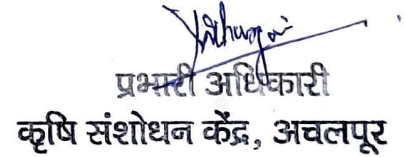 प्रभारी अधिकारी
कृषि संशोधन केंद्र, अचलपूर